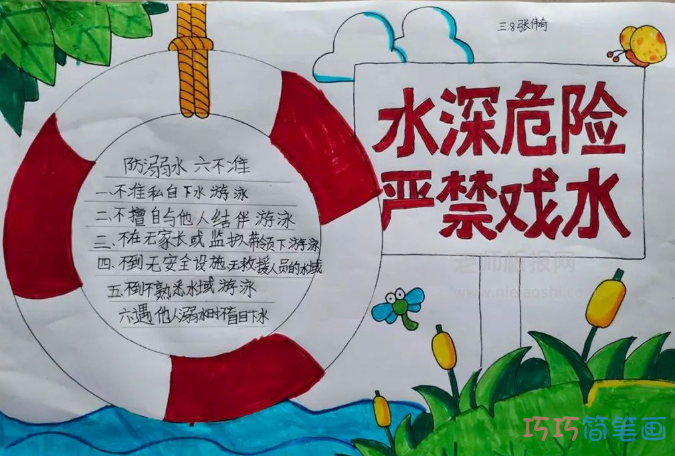 三.8张伟奇
水深危险
严禁戏水
防溺水 六不准
一.不准私自下水游泳
二.不擅自与他人结伴游泳
三.不在无家长或监护人带领下游泳
四.不到无安全设施无救援人员的水域
五.不到不熟悉水域游泳
六遇他人溺水时不盲目下水
老师板报网
巧巧简笔画